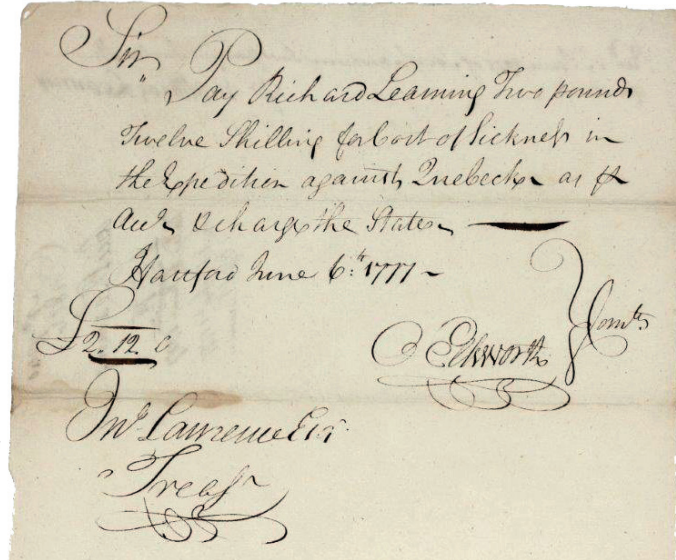 Sir
Pay Richard Leaming Two pounds
Twelve Shilling for Cost of Sickness in
the Expedition against Quebeck as
& charge the State
Hartford June 6th 1777
£2.12.0
O Elsworth Comtt
Jno Lawrence Esqr
Treasr